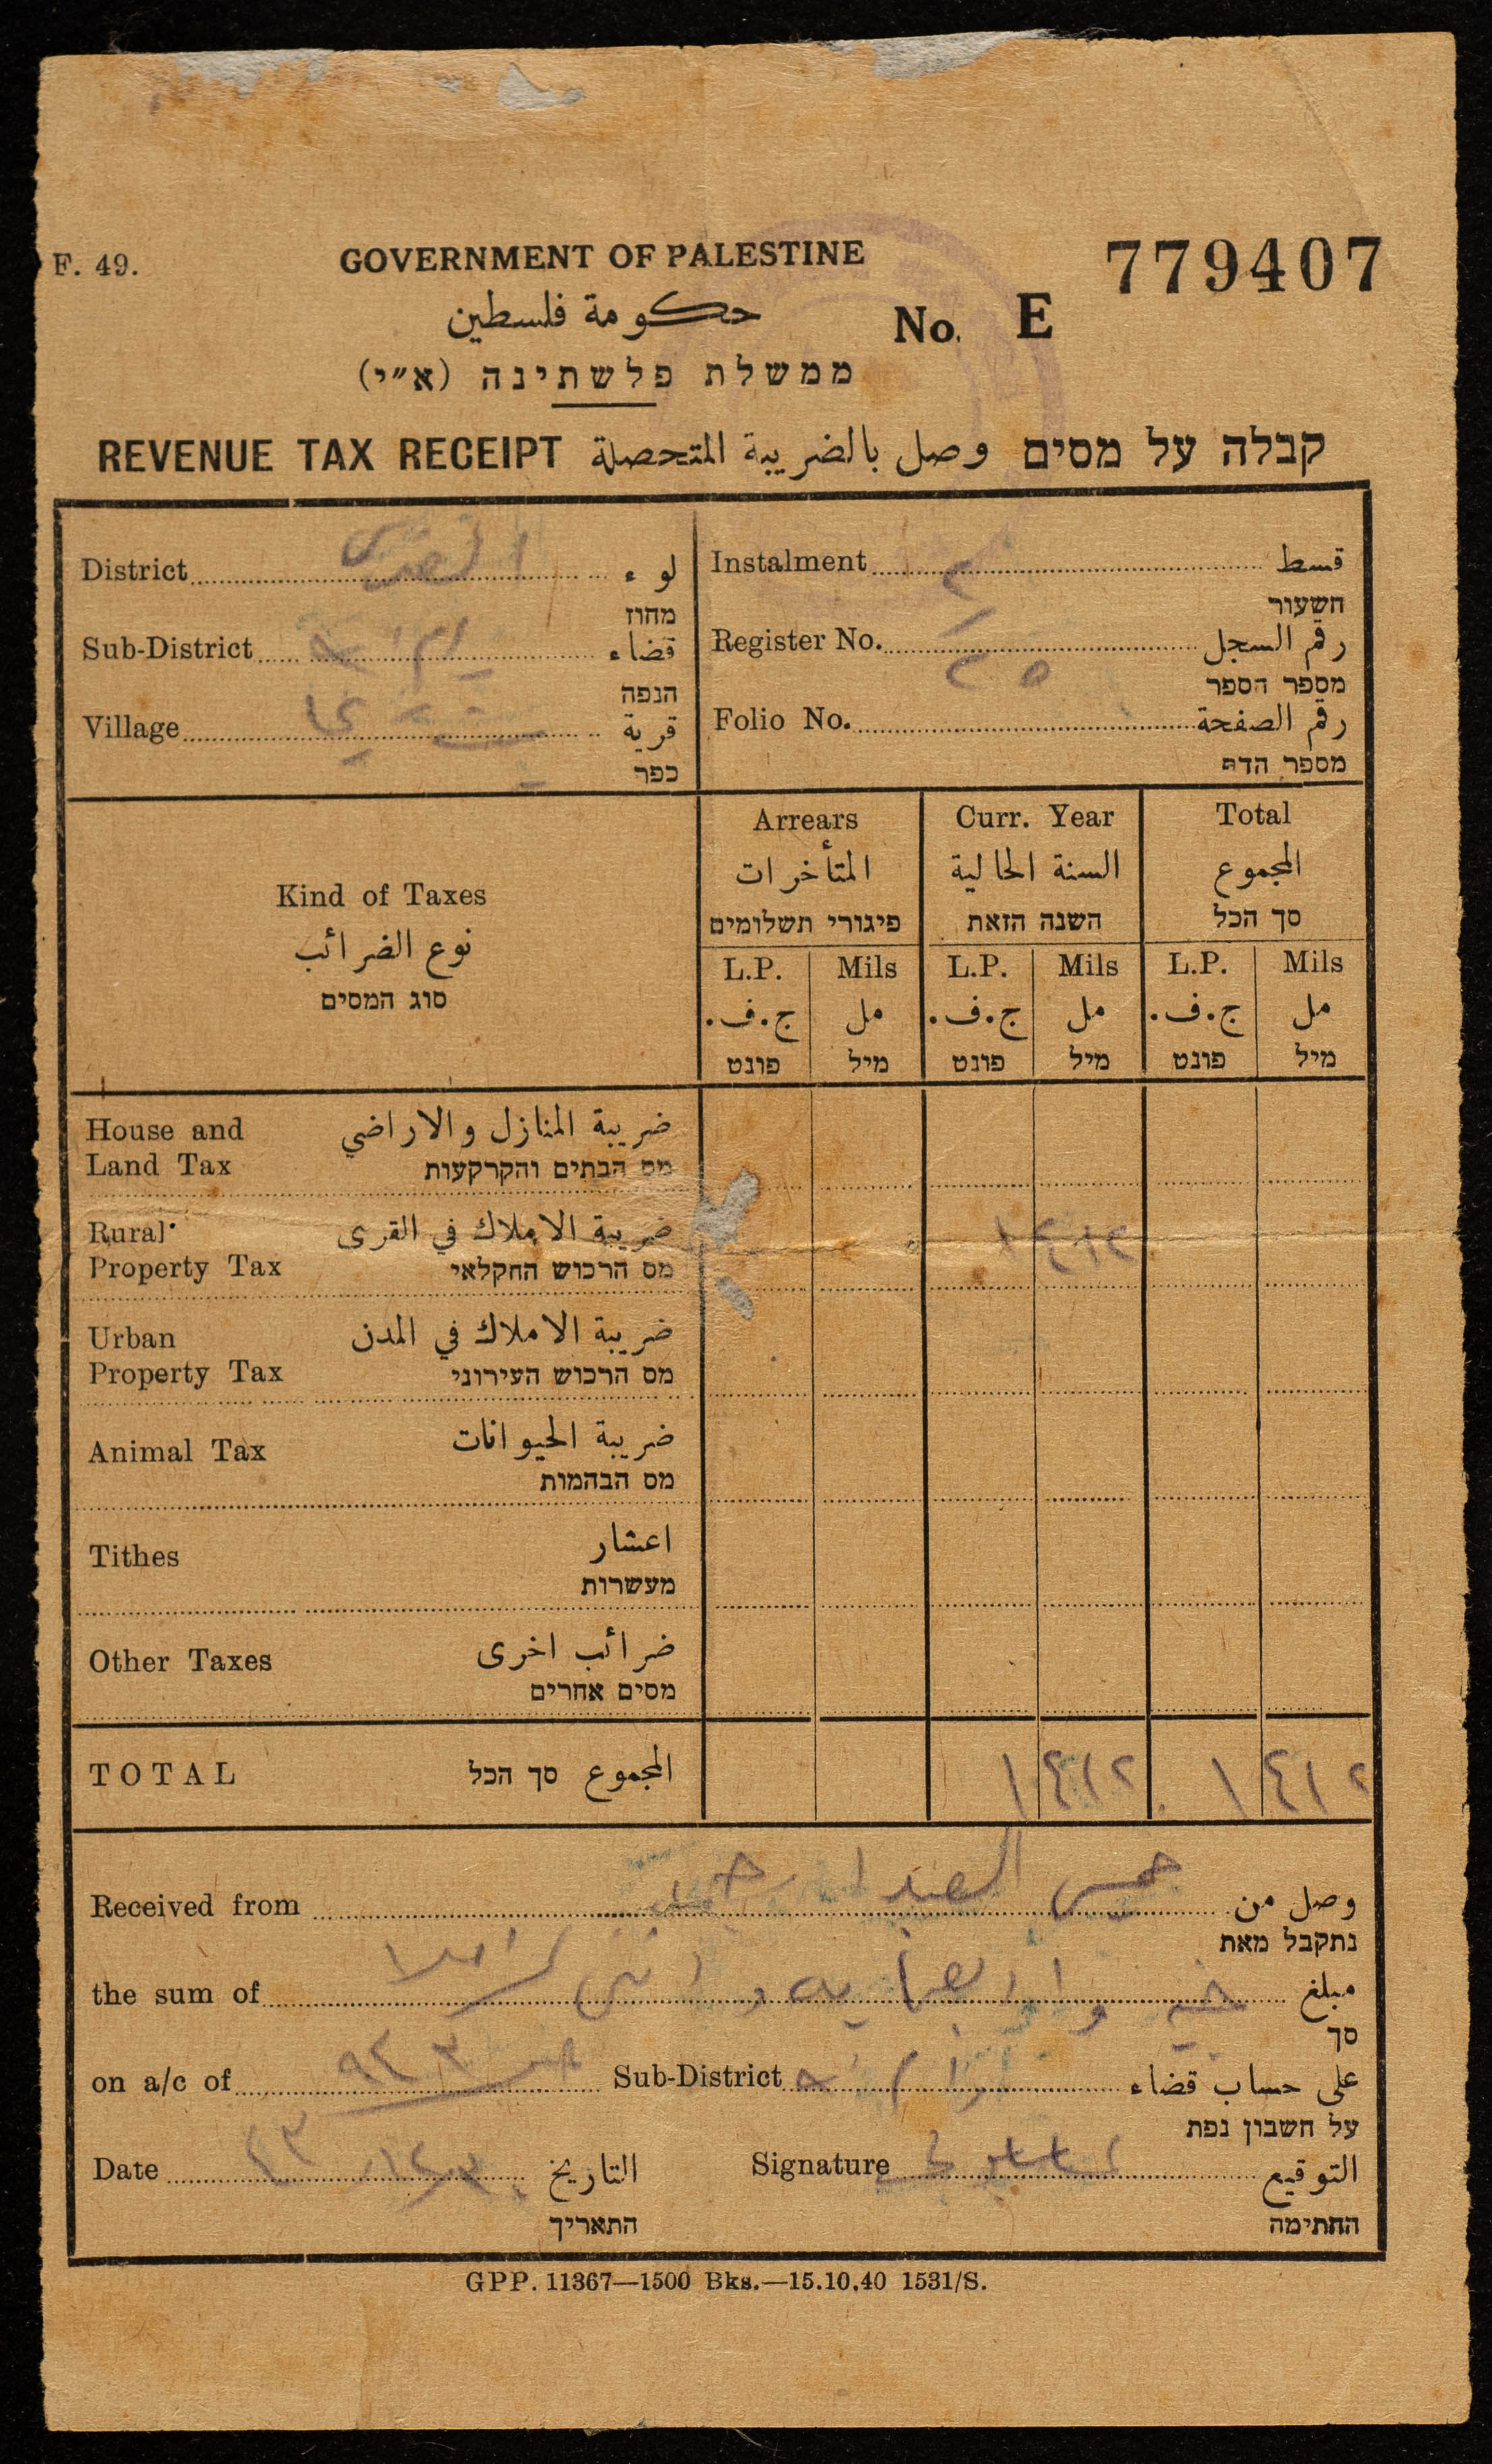 F. 49.
GOVERNMENT OF PALESTINE
779407
حكومة فلسطين
No. E
ממשלת פלשתינה (א״י)
REVENUE TAX RECEIPT وصل بالضريبة المتحصلة קבלה על מסים
District القدس لوء
מחוז
Sub-District رام الله قضاء
הנפה
Village قرية
כפר
Instalment قسط
השעור
Register No. رقم السجل
מספר הספר
٢٥
Folio No. رقم الصفحة
מספר הדף
Kind of Taxes
نوع الضرائب
סוג המסים
Arrears Curr. Year Total
المتأخرات السنة الحالية المجموع
פיגורי תשלומים השנה הזאת סך הכל
L.P. Mils L.P. Mils L.P. Mils
ج.ف. مل ج.ف. مل ج.ف. مل
פונט מיל פונט מיל פונט מיל
House and Land Tax ضريبة المنازل والاراضي
מס הבתים והקרקעות
Rural Property Tax ضريبة الاملاك في القرى ١ ٤١٢
מס הרכוש החקלאי
Urban Property Tax ضريبة الاملاك في المدن
מס הרכוש העירוני
Animal Tax ضريبة الحيوانات
מס הבהמות
Tithes اعشار
מעשרות
Other Taxes ضرائب اخرى
מסים אחרים
TOTAL المجموع סך הכל ١ ٤١٢ ١ ٤١٢
Received from وصل من
נתקבל מאת
the sum of مبلغ
جنيه و اربعماية و اثنى
סך
on a/c of ٩٤٣ Sub-District رام الله على حساب قضاء
על חשבון נפת
Date التاريخ Signature التوقيع
התאריך החתימה
GPP. 11367—1500 Bks.—15.10.40 1531/S.